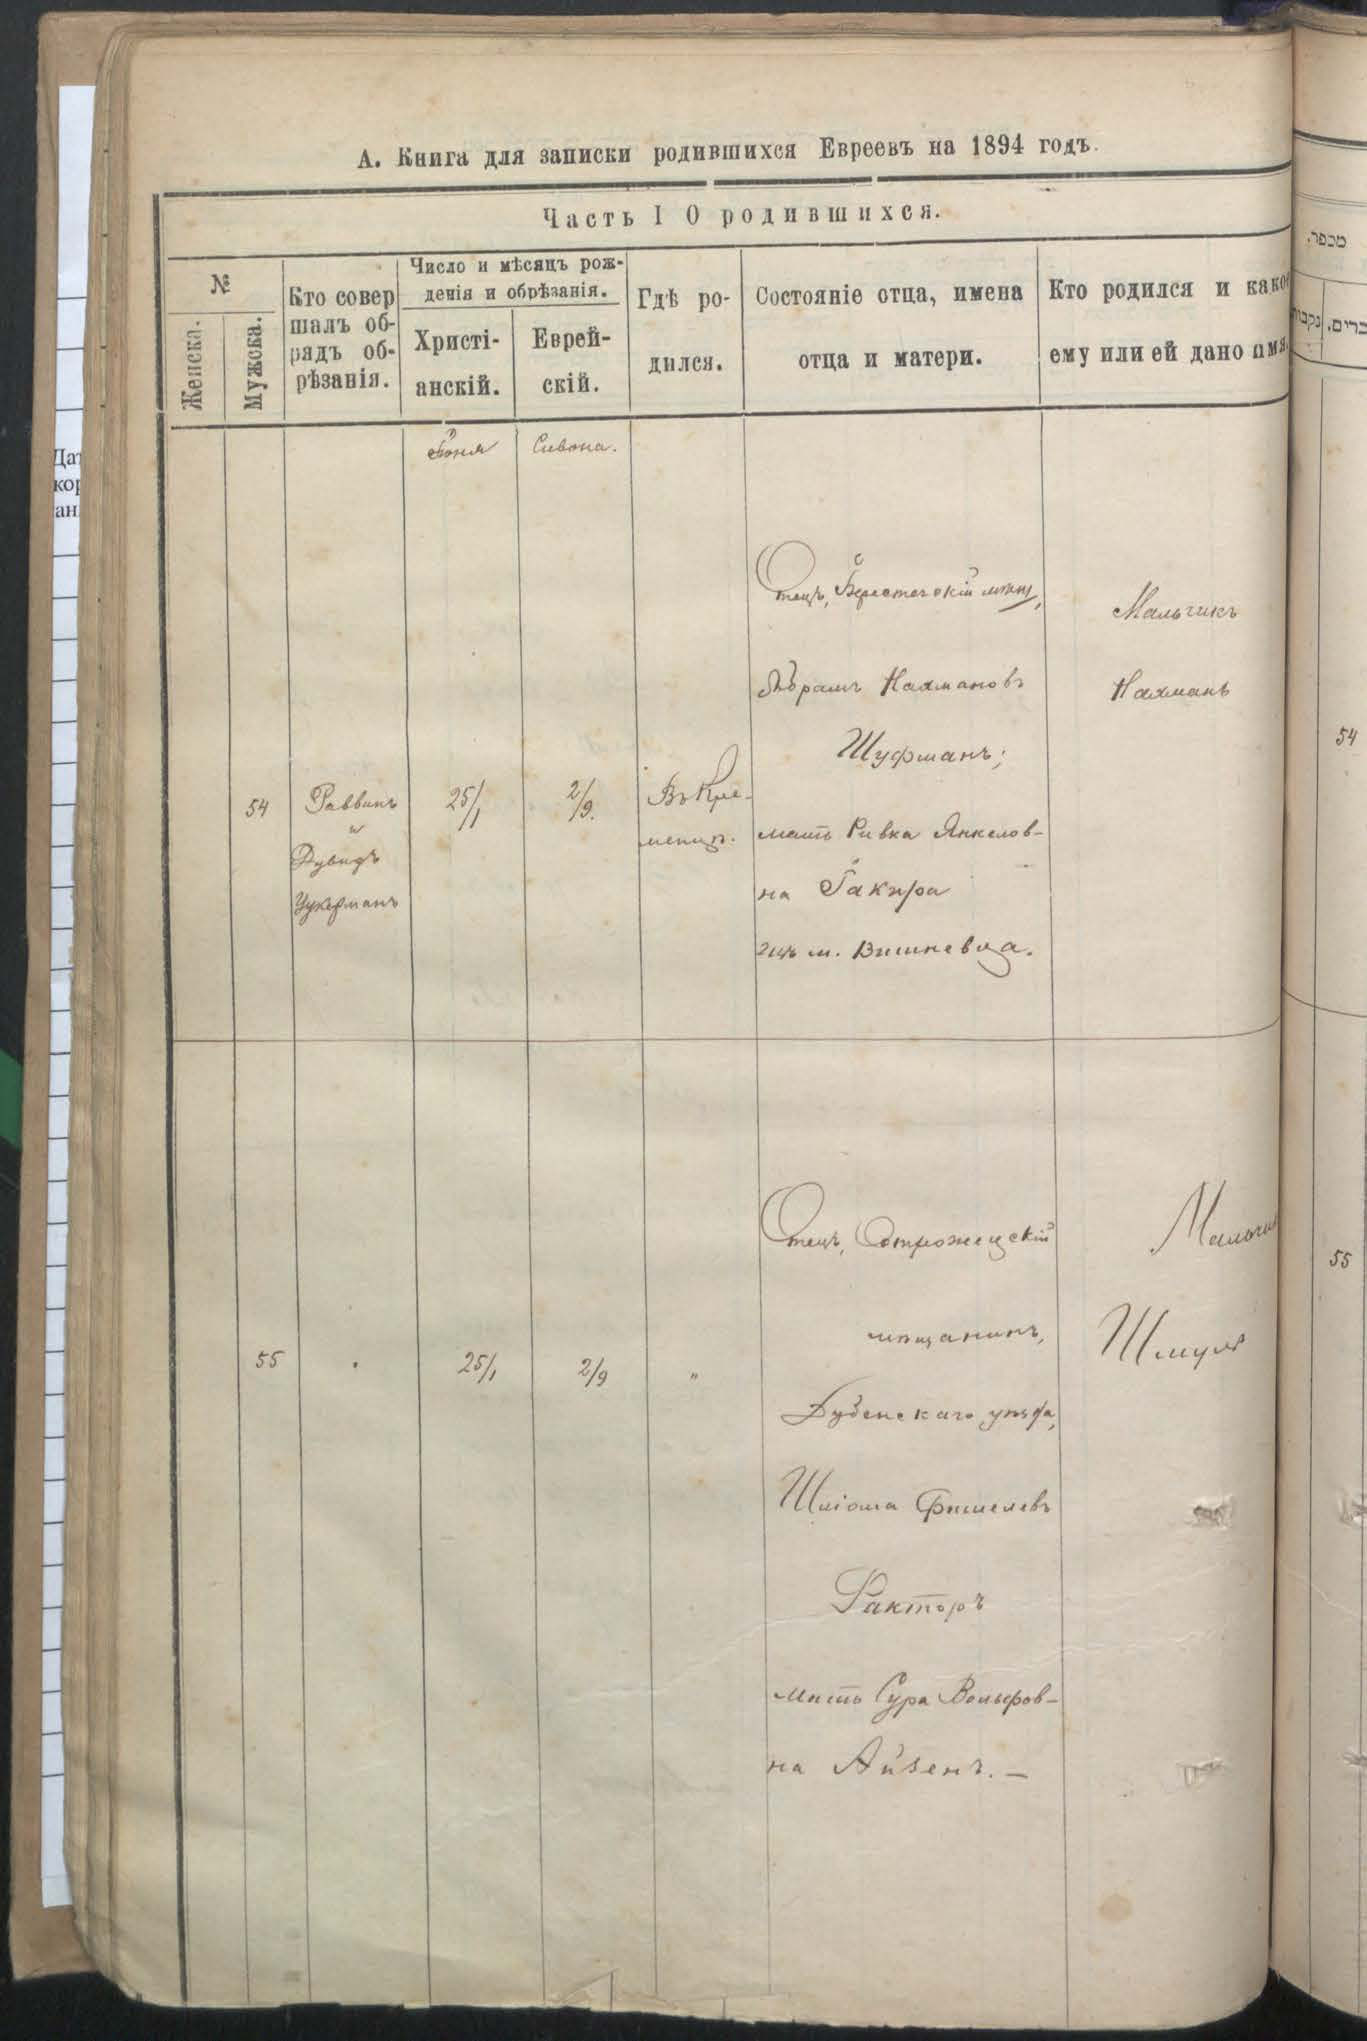 А. Книга для записки родившихся Евреевъ на 1894 годъ.
Часть I О родившихся.
№
Женска.
Мужска.
Кто совер
шалъ об-
рядъ об-
рѣзанія.
Число и мѣсяцъ рож-
денія и обрѣзанія.
Христі-
анскій.
Еврей-
скій.
Гдѣ ро-
дился.
Состояніе отца, имена
отца и матери.
Кто родился и какое
ему или ей дано имя.
Іюня
Сивона.
54
Раввинъ
и
Дувидъ
Цукерманъ
25/1
2/9.
Въ Кре-
менцѣ.
Отецъ, Берестечскій мѣщ,
Абрамъ Нахмановъ
Шуфманъ;
мать Ривка Янкелов-
на
изъ м. Вишневца.
Мальчикъ
Нахманъ
55
25/1
2/9
"
Отецъ,
мѣщанинъ,
Дубенскаго уѣзда,
Шліома Фишелевъ
Факторъ
мать Сура Вольфов-
на Айзенъ. —
Шмуль
מספר.
54
55
Дат
кор
ан